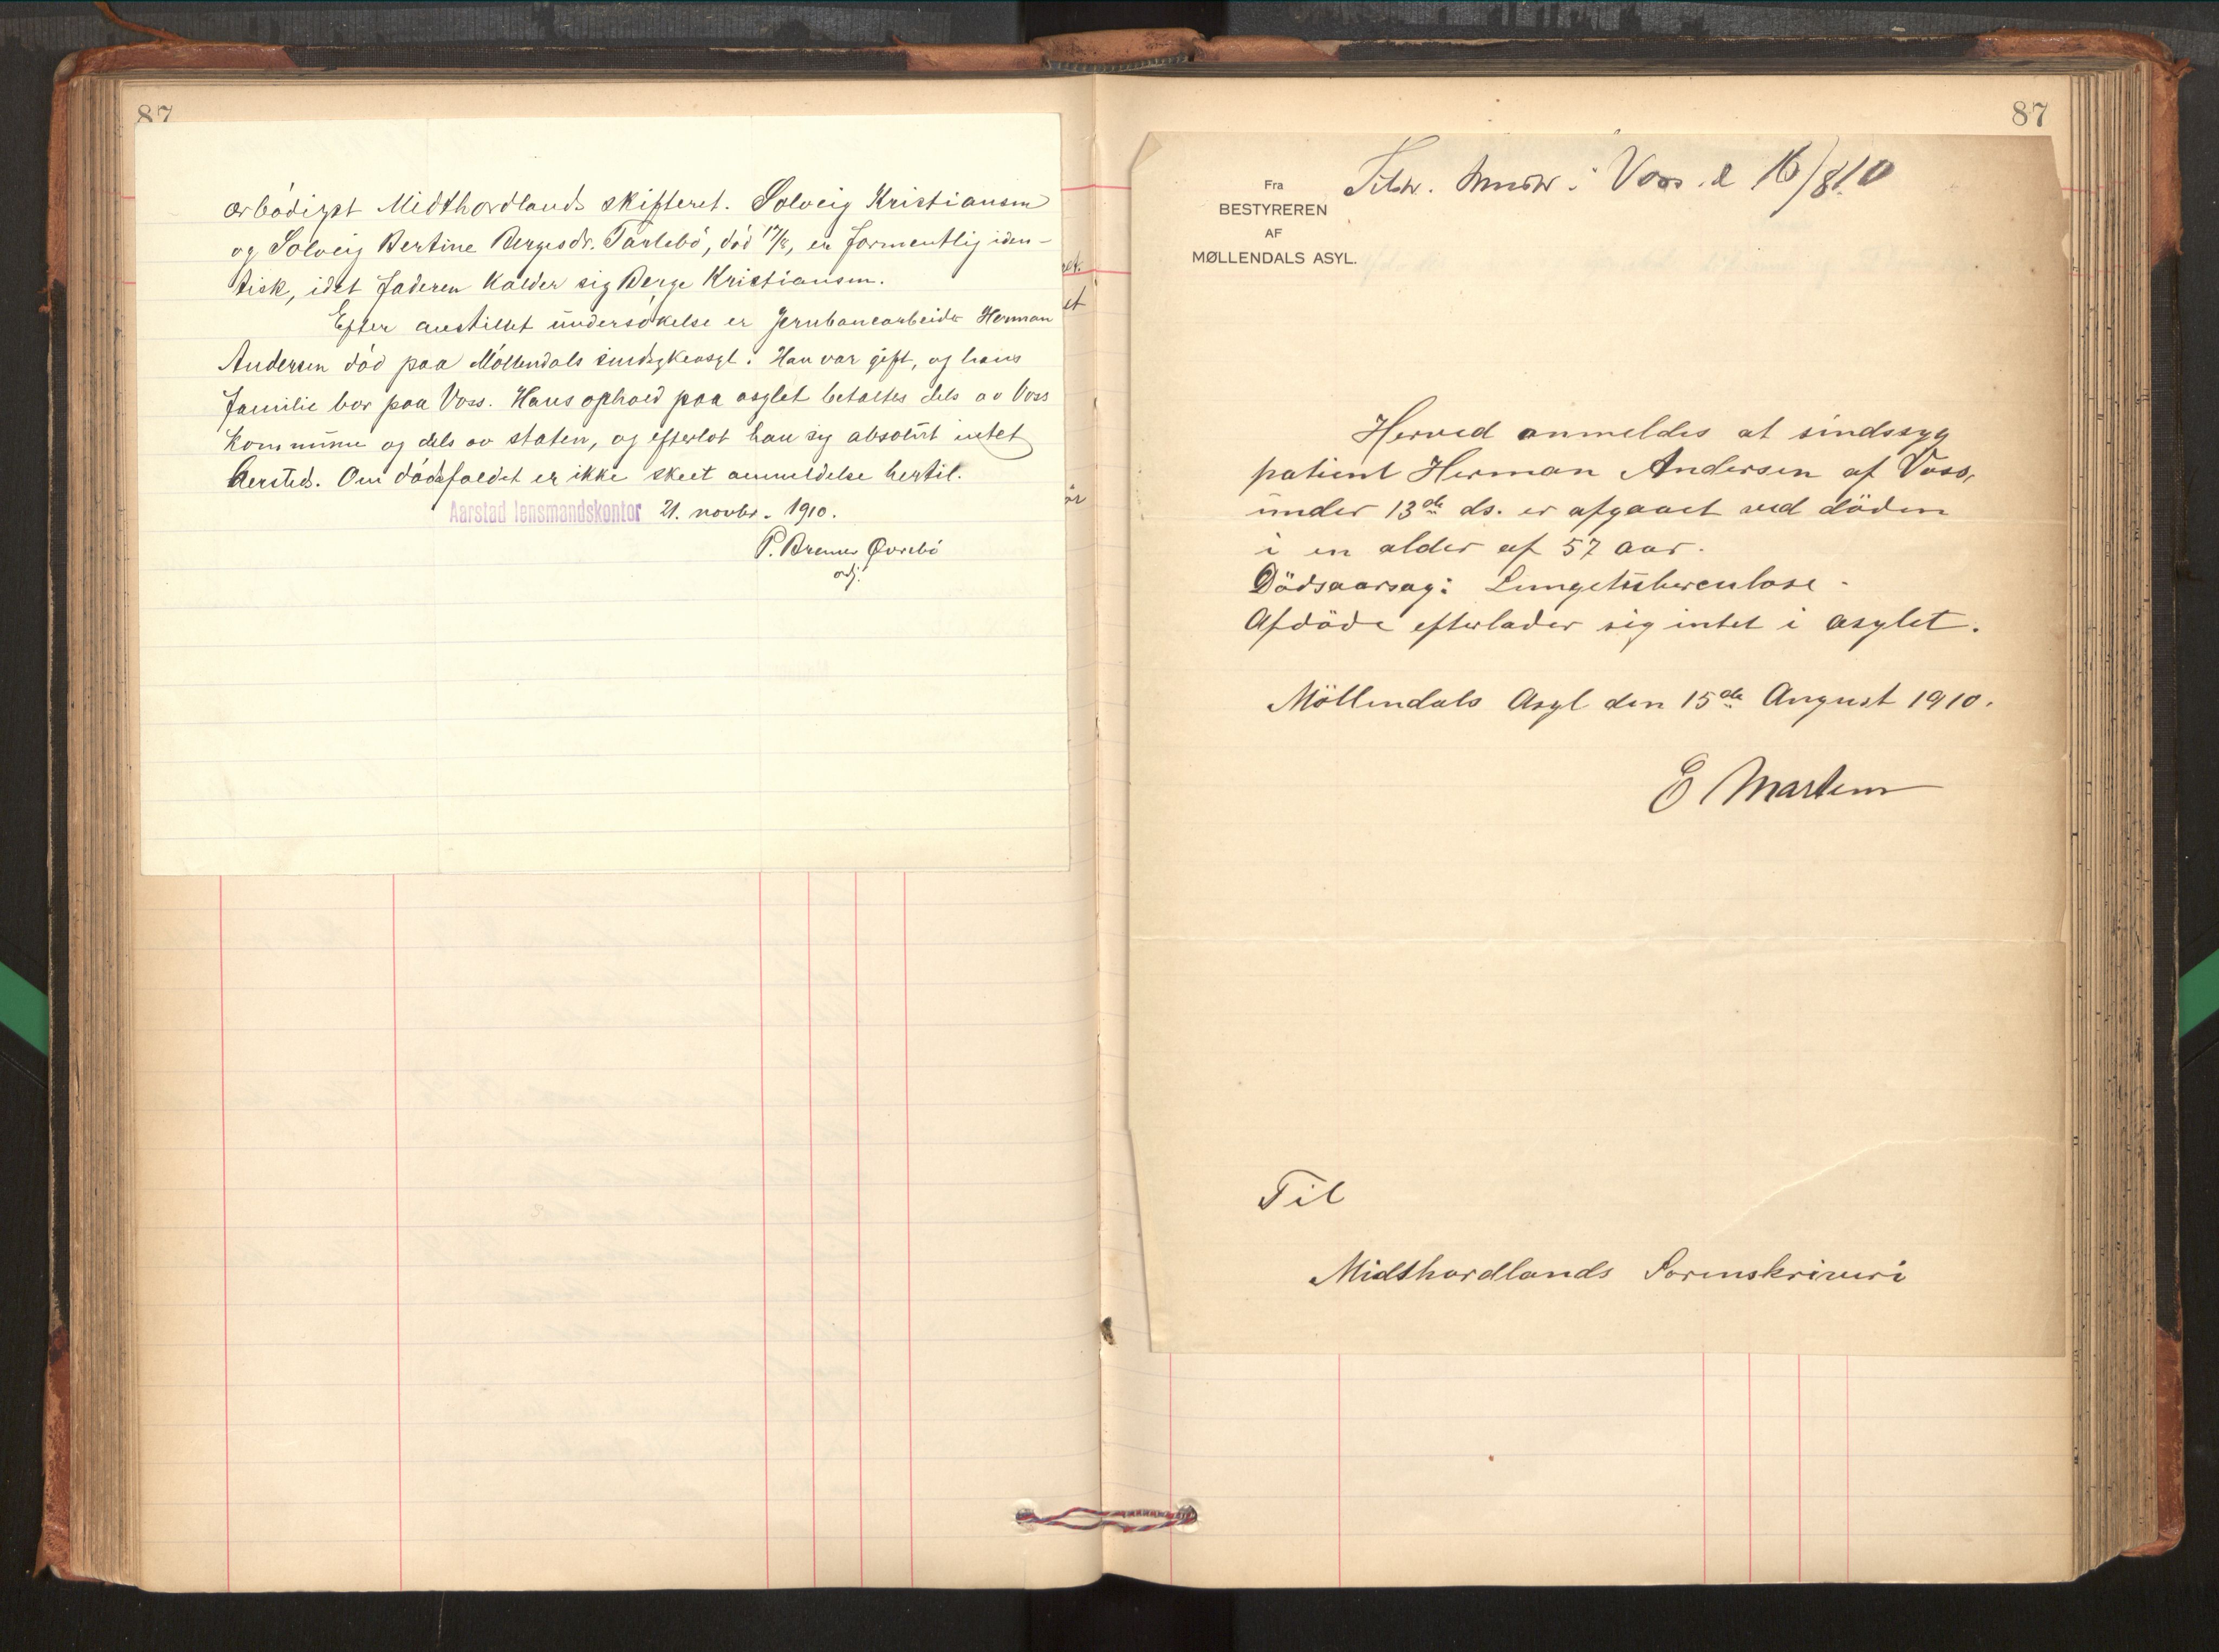 87
ærbødigst Midthordlands skifteret. Solveig Kristiansen
og Solveig Bertine Bergesdr. Tarlebö, död 17/8, er formentlig iden-
tisk, idet faderen kalder sig Berge Kristiansen.
Efter anstillet undersökelse er jernbanearbeider Herman
Andersen död paa Möllendals sindsykeasyl. Han var gift, og hans
familie bor paa Voss. Hans ophold paa asylet betaltes dels av Voss
kommune og dels av staten, og efterlot han sig absolut intet
hersteds. Om dödsfaldet er ikke skeet anmeldelse hertil.
Aarstad lensmandskontor 21. novbr. 1910.
P. Bremer Øvrebö
adj.
87
i Voss d 16/8 10
Fra
BESTYREREN
AF
MØLLENDALS ASYL.
Herved anmeldes at sindssyg
patient Herman Andersen af Voss,
under 13de ds. er afgaaet ved döden
i en alder af 57 aar.
Dödsaarsag: Lungetuberculose.
Afdöde efterlader sig intet i asylet.
Möllendals Asyl den 15de August 1910.
E Martens
Til
Midthordlands Sorenskriveri